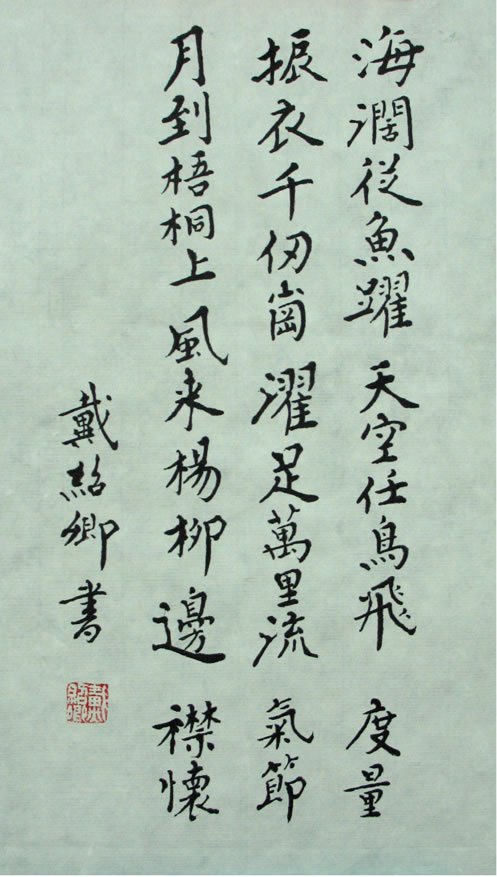 海濶從魚躍 天空任鳥飛 度量
振衣千仞崗 濯足萬里流 氣節
月到梧桐上 風来楊柳邊 襟懷
戴紹卿書